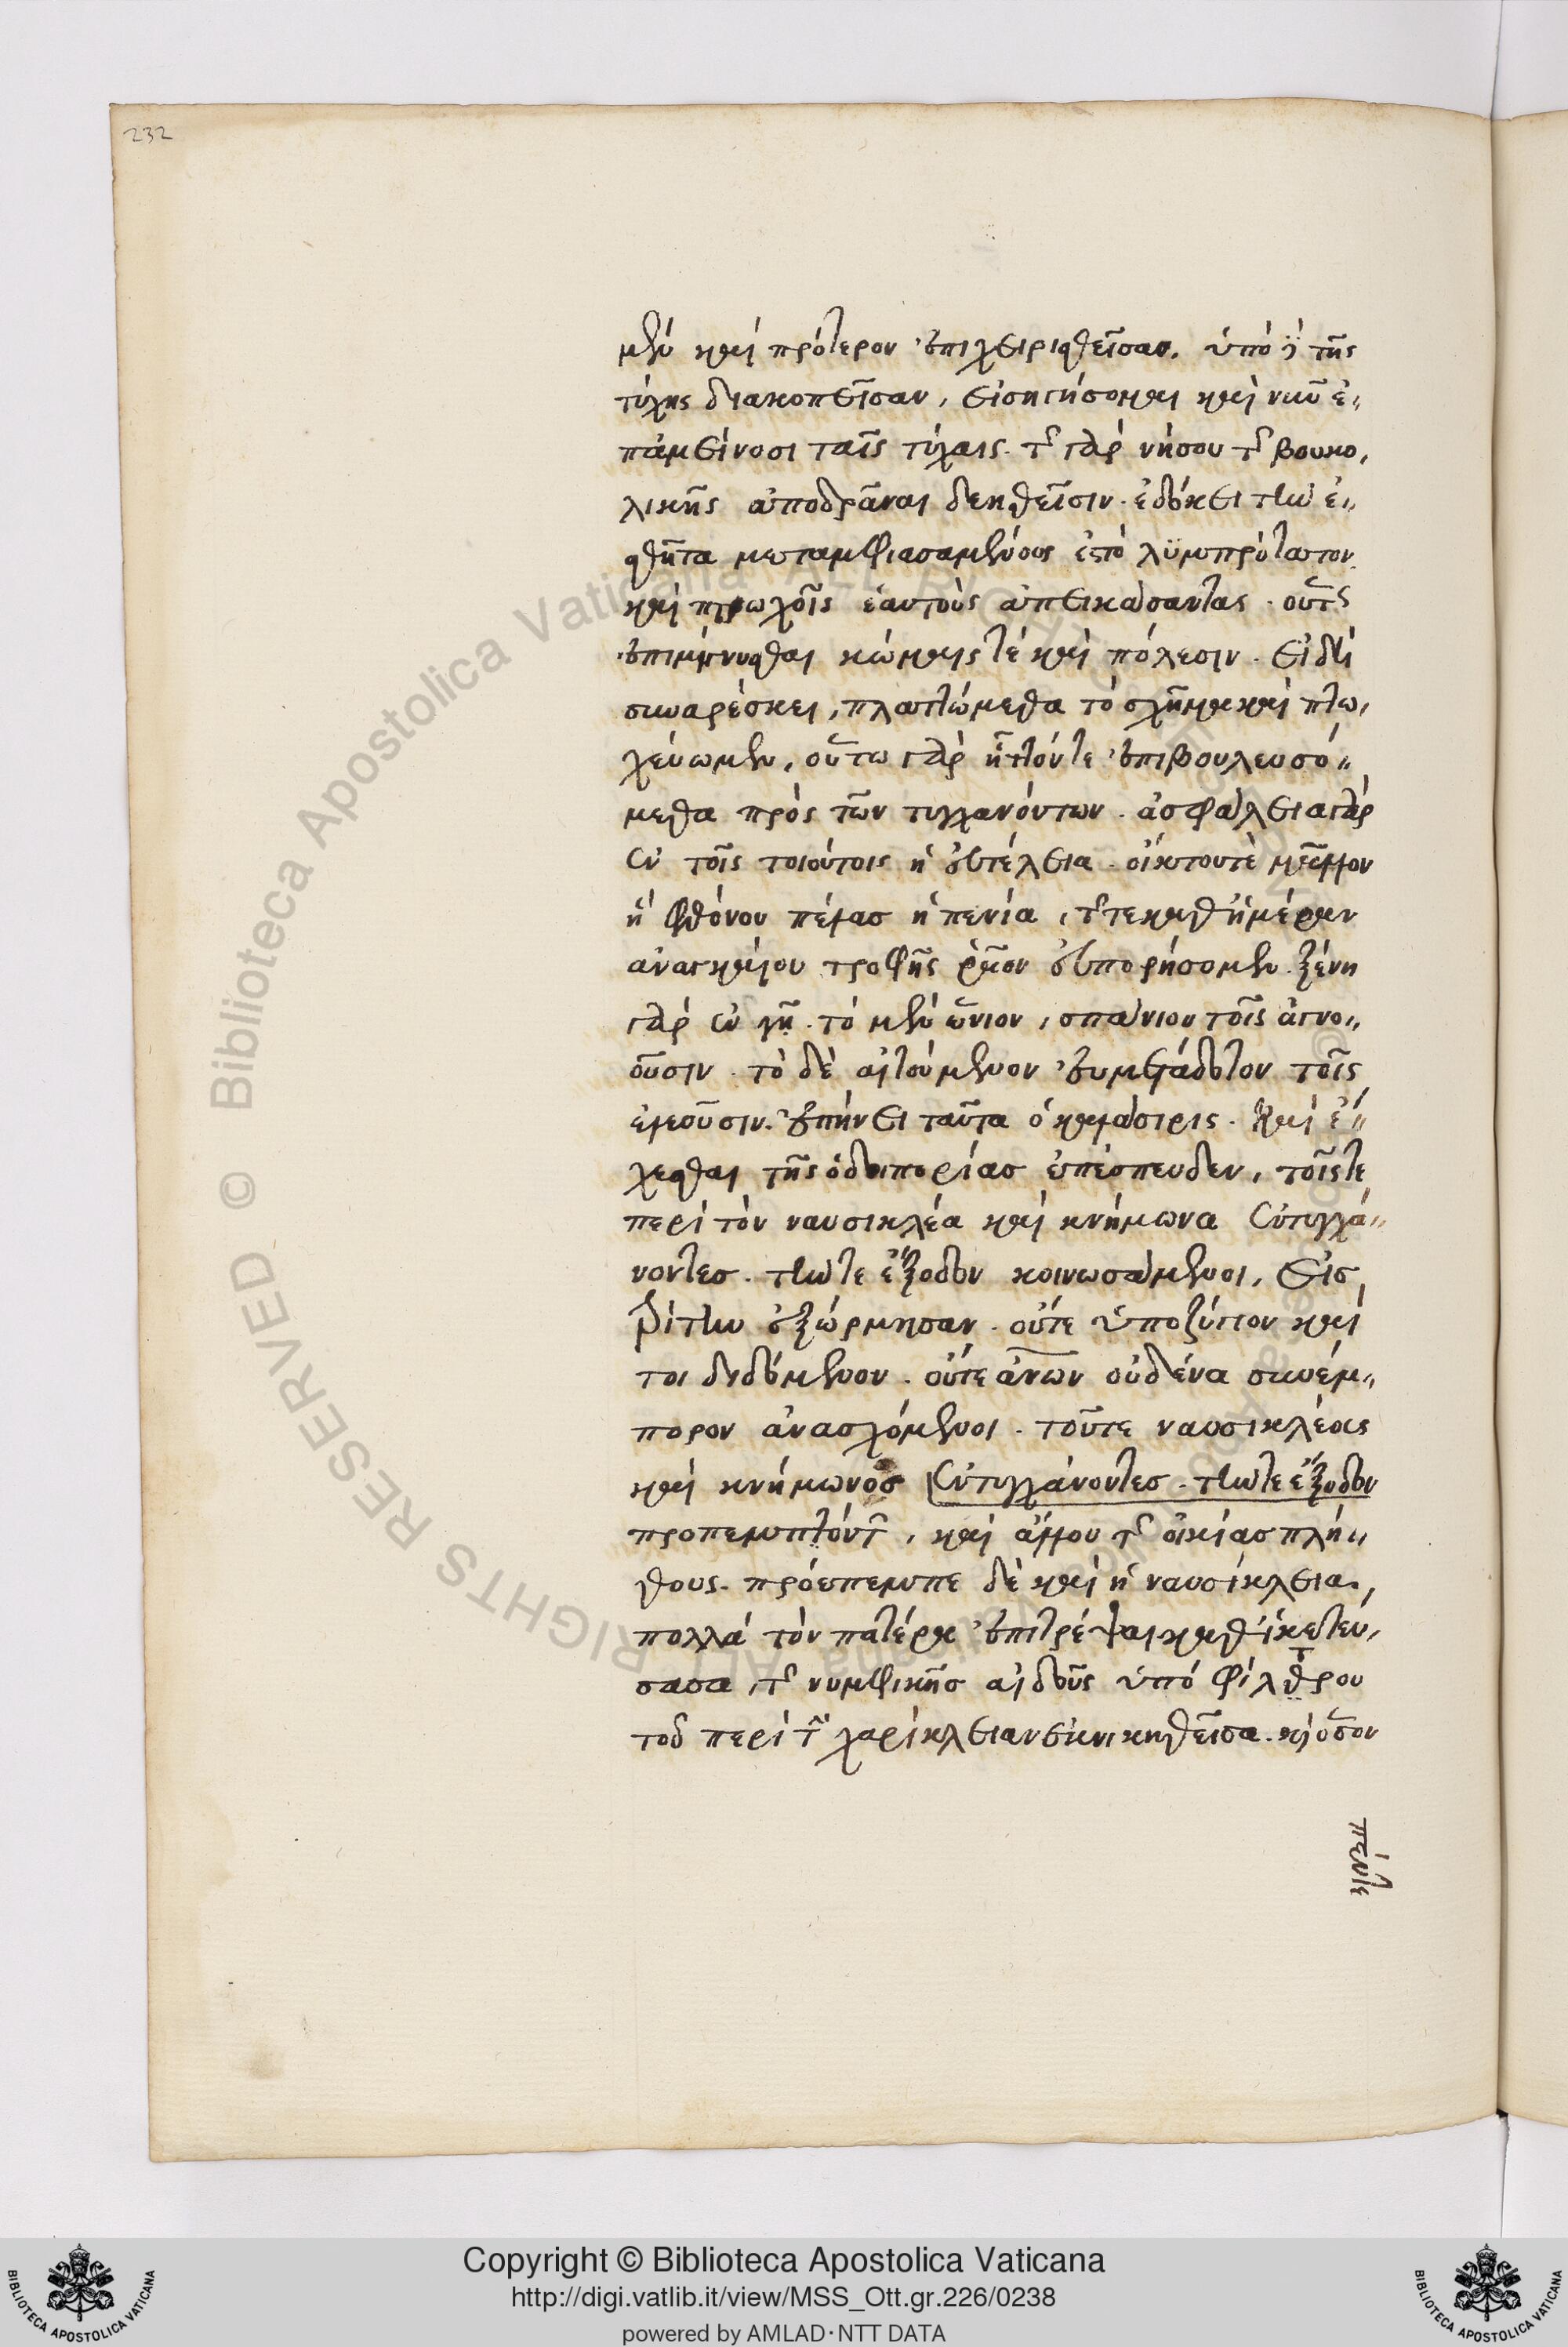 232
μὲν καὶ πρότερον ἐπιχειρισθεῖσαν. ὑπὸ δὲ τῆς
τύχης διακοπεῖσαν, εἰσηγήσομαι καὶ νῦν ἐ„
παμείνοσι ταῖς τύχαις. τῆς γὰρ νήσου τῆς βουκο,
λικῆς ἀποδρᾶναι δεηθεῖσιν. ἐδόκει τὴν ἐ„
σθῆτα μεταμφιασαμένους ἐπὸ λυμπρότατον
καὶ πτωχοῖς ἑαυτοὺς ἀπεικάσαντας. οὕτως
ἐπιμίγνυσθαι κώμαις τὲ καὶ πόλεσιν. εἰ δὴ
συναρέσκει, πλαττώμεθα τὸ σχῆμα καὶ πτω,
χεύωμεν, οὕτω γὰρ ἧττόντε ἐπιβουλευσό„
μεθα πρὸς τῶν τυγχανόντων. ἀσφάλεια γὰρ
ἐν τοῖς τοιούτοις ἡ εὐτέλεια. οἴκτουτὲ μᾶλλον
ἢ φθόνου πέρας ἡ πενία, τῆς τε καθ' ἡμέραν
ἀναγκαίου τροφῆς ῥᾷον εὐπορήσομεν. ξένη
γὰρ ἐν γῇ. τὸ μὲν ὤνιον, σπάνιον τοῖς ἀγνο„
οῦσιν. τὸ δὲ αἰτούμενον εὐμετάδοτον τοῖς
ἐλεοῦσιν. ἐπήνει ταῦτα ὁ καλάσιρις. καὶ ἔ„
χεσθαι τῆς ὁδοιπορίας ἐπέσπευδεν, τοῖς τε
περὶ τὸν ναυσικλέα καὶ κνήμωνα ἐντυγχά„
νοντες. τήν τε ἔξοδον κοινωσάμενοι, εἰς
τρίτην ἐξώρμησαν. οὔτε ὑποζύγιον καί
τοι διδόμενον. οὔτε ἀνων οὐδένα συνέμ„
πορον ἀνασχόμενοι. τοῦτε ναυσικλέους
καὶ κνήμωνος ἐντυγχάνοντες. τήν τε ἔξοδον
προπεμπόντων, καὶ ἄλλου τῆς οἰκίας πλή„
θους. προύπεμπε δὲ καὶ ἡ ναυσίκλεια,
πολλὰ τὸν πατέρα ἐπιτρέψαι καθικετεύ,
σασα, τῆς νυμφικῆς αἰδοῦς ὑπὸ φίλθτρου
τοῦ περὶ τὴν χαρίκλειαν ἐκνικηθεῖσα. καὶ ὅσον
πέντε
Copyright © Biblioteca Apostolica Vaticana
http://digi.vatlib.it/view/MSS_Ott.gr.226/0238
powered by AMLAD·NTT DATA
BIBLIOTECA APOSTOLICA VATICANA
BIBLIOTECA APOSTOLICA VATICANA